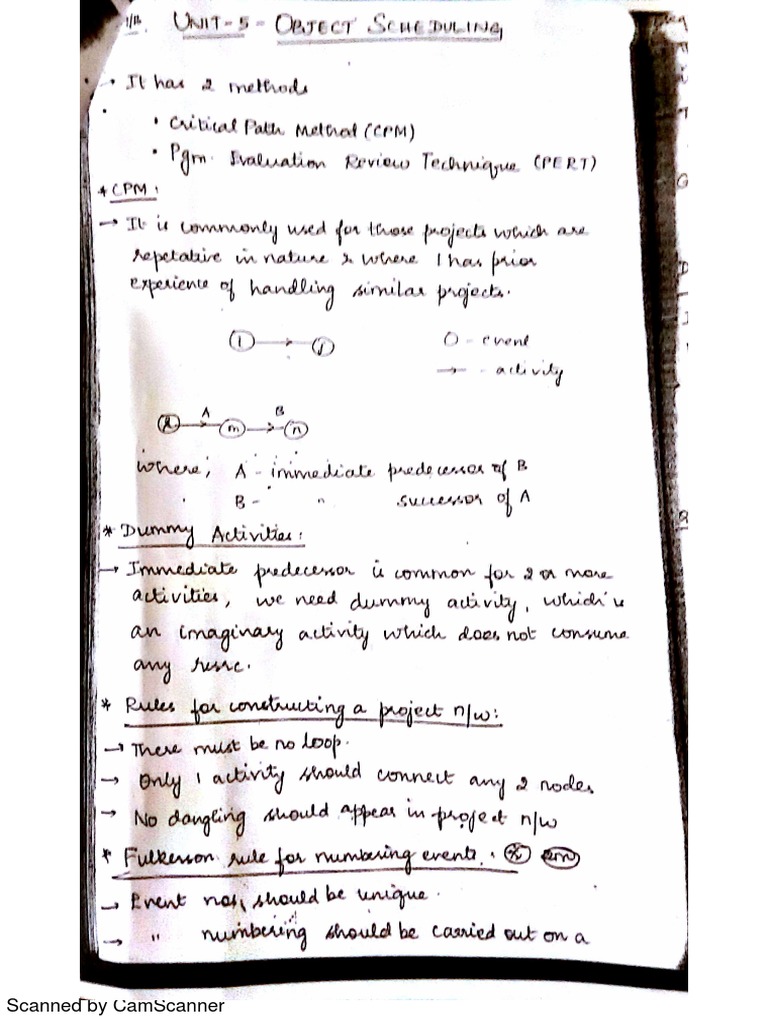 1/12. UNIT-5 - OBJECT SCHEDULING
→ It has 2 methods
• Critical Path Method (CPM)
• Pgm. Evaluation Review Technique (PERT)
* CPM:
→ It is commonly used for those projects which are
repetative in nature & where 1 has prior
experience of handling similar projects.
i → j O - event
→ - activity
A B
l → m → n
where, A - immediate predecessor of B
B - " successor of A
* Dummy Activities:
→ Immediate predecessor is common for 2 or more
activities, we need dummy activity, which is
an imaginary activity which does not consume
any
* Rules for constructing a project n/w:
→ There must be no loop.
→ Only 1 activity should connect any 2 nodes
→ No dangling should appear in project n/w
* Fulkerson rule for numbering events.
→ Event nos, should be unique.
→ " numbering should be carried out on a
Scanned by CamScanner